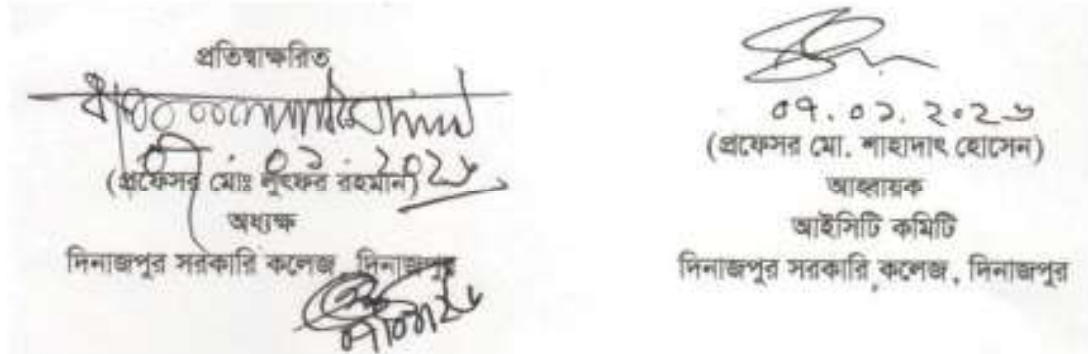 প্রতিস্বাক্ষরিত
(প্রফেসর মোঃ লুৎফর রহমান)
অধ্যক্ষ
দিনাজপুর সরকারি কলেজ, দিনাজপুর
০৭.০১.২০২৬
(প্রফেসর মো. শাহাদাৎ হোসেন)
আহ্বায়ক
আইসিটি কমিটি
দিনাজপুর সরকারি কলেজ, দিনাজপুর